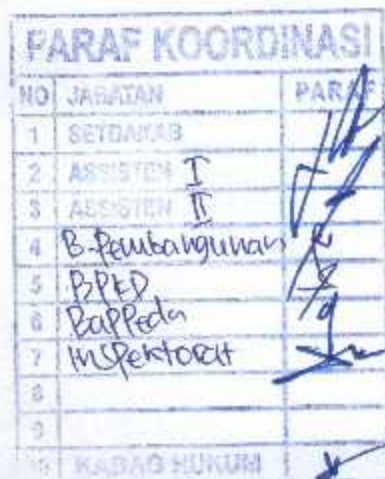 PARAF KOORDINASI
NO JABATAN PARAF
1 SETDAKAB
2 ASSISTEN I
3 ASSISTEN II
4 B. Pembangunan
5 BPKD
6 Bappeda
7 Inspektorat
8
9
10 KABAG HUKUM